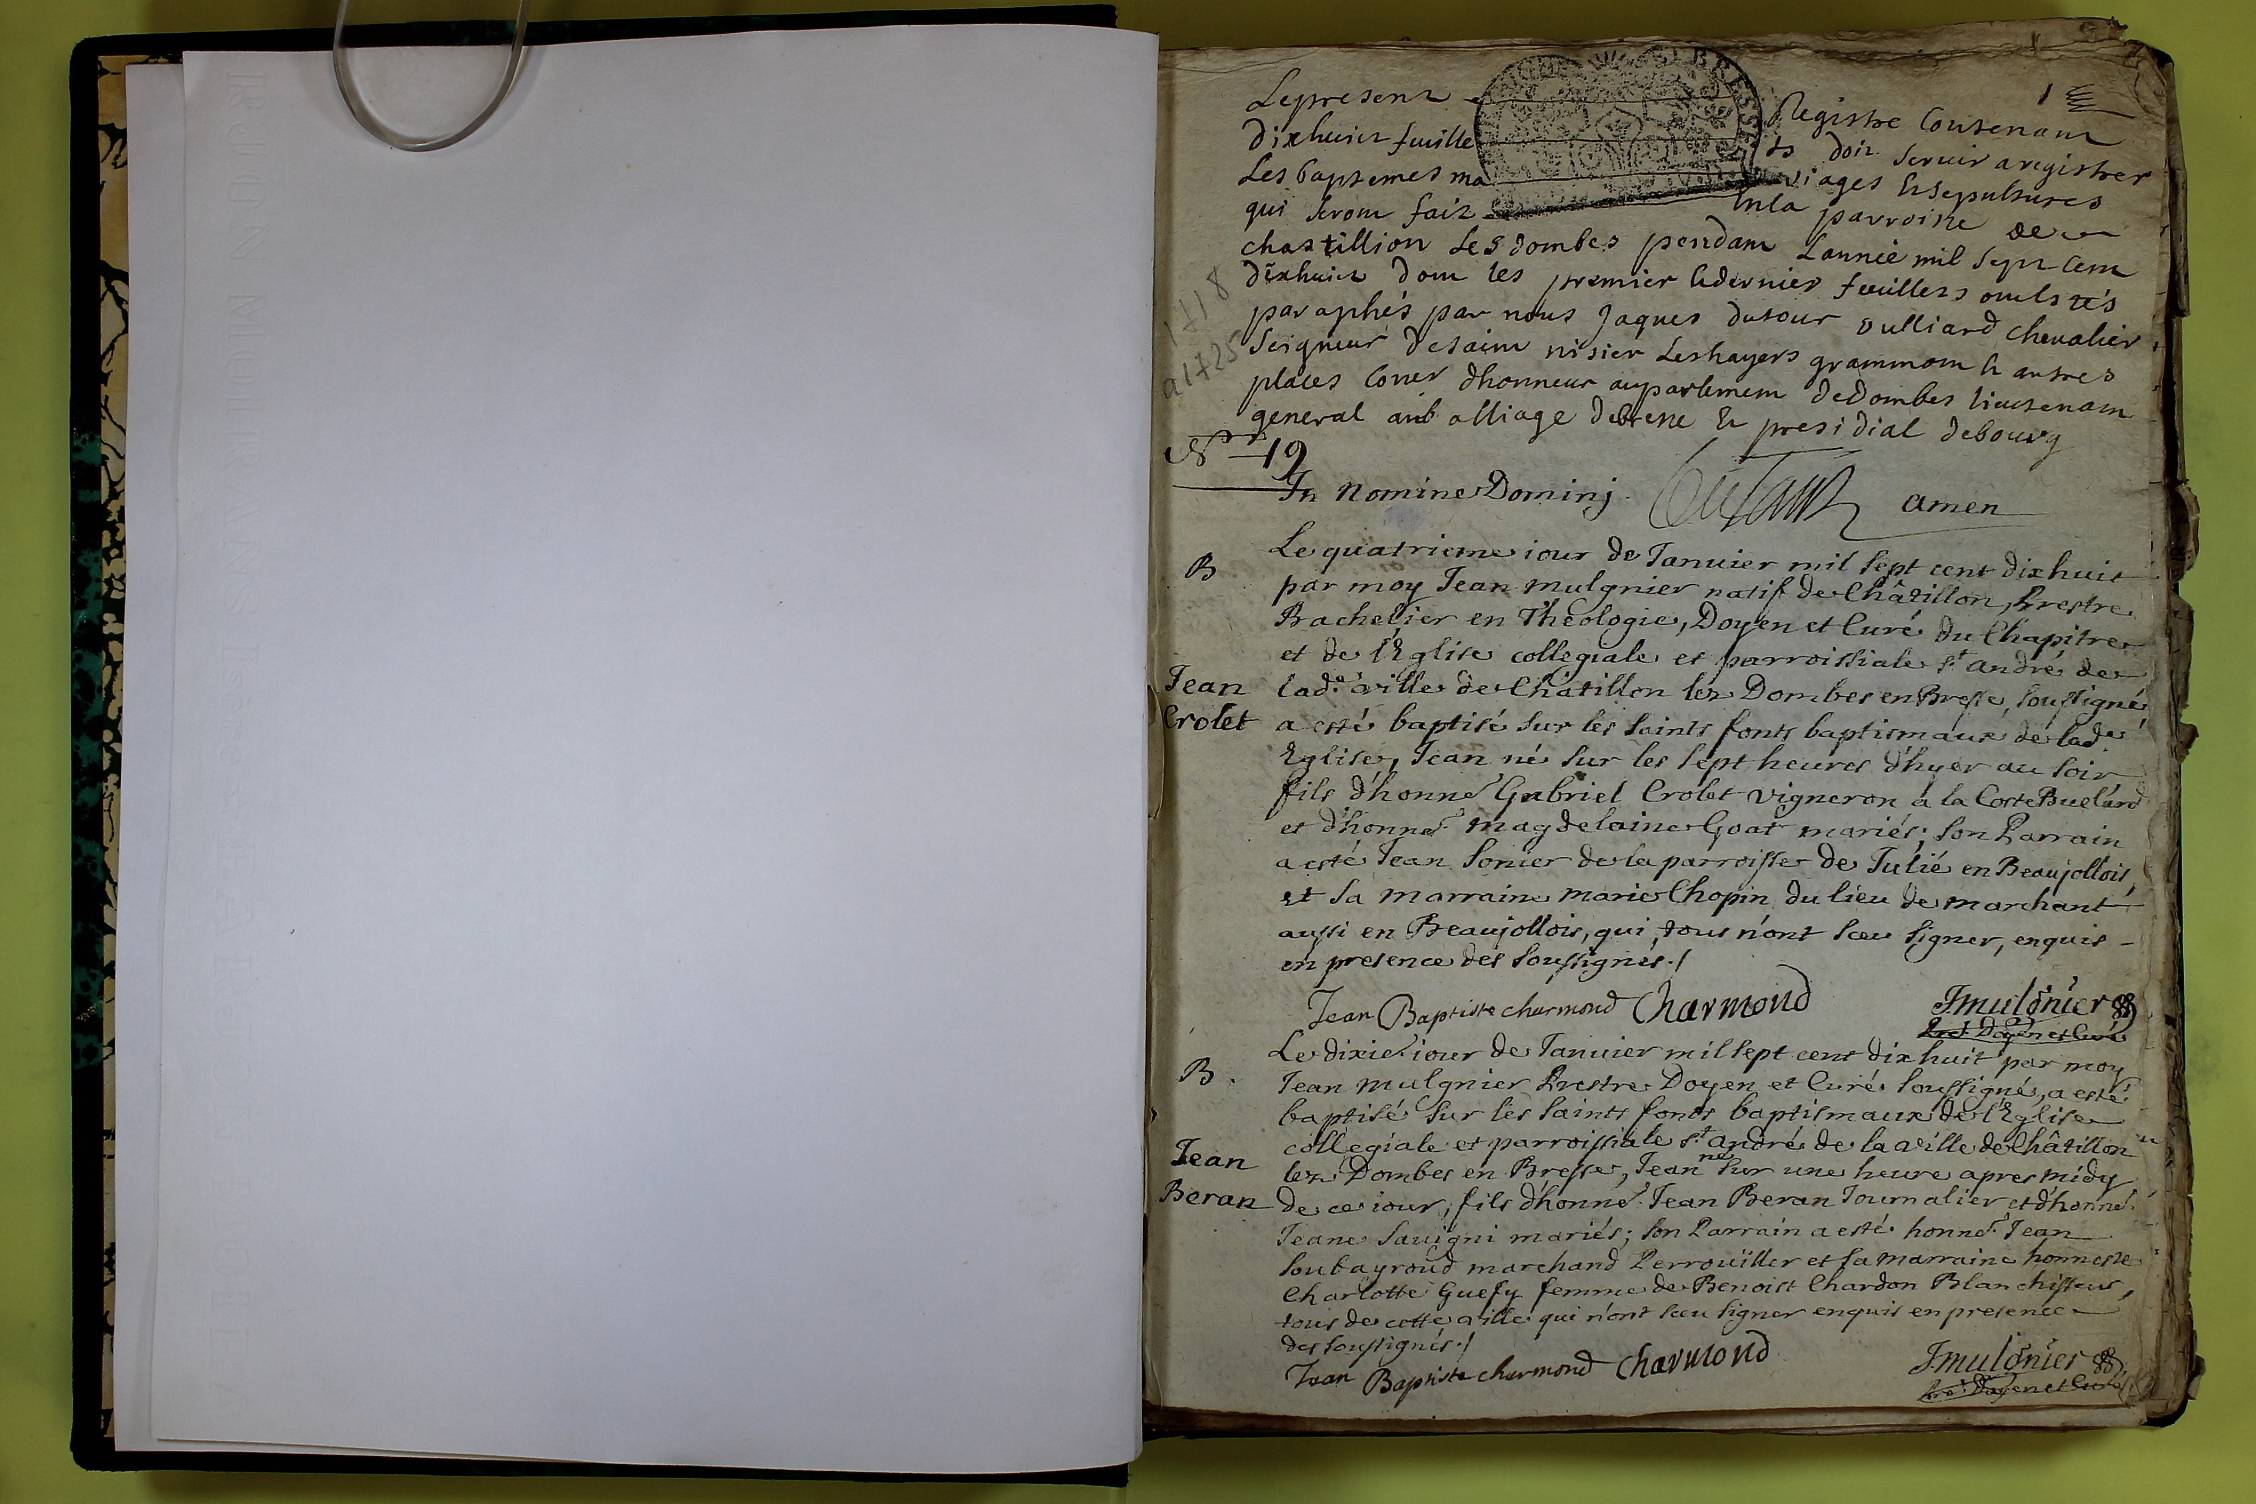 1
Le present Registre Contenant
dixhuict feuillets doit servir a registrer
Les baptemes mariages et sepultures
qui seront faits en la parroisse de
chastillion Les dombes pendant Lannée mil sept cent
dixhuict dont les premier et dernier feuillets ont estés
paraphés par nous Jaques dutour vulliard chevalier
Seigneur de saint nisier Les hayers grammont et autres
places Coner dhonneur au parlement de Dombes lieutenant
general au balliage de bresse et presidial de bourg
1718
a 1725
No 19
In nomine Dominj. Dutour amen
B
Jean
Crolet
Le quatrieme iour de Januier mil sept cent dixhuit
par moy Jean mulgnier natif de Châtillon, Prestre
Bachelier en Theologie, Doyen et Curé du Chapitre
et de l'Eglise collegiale et parroissiale st andré de
lade ville de Châtillon lez Dombes en Bresse, soussigné,
a esté baptisé sur les saints fonts baptismaux de lade
Eglise, Jean né sur les sept heures d'hyer au soir
fils d'honne Gabriel Crolet vigneron à la Coste Buelard
et d'honne magdelaine Goat mariés; son Parrain
a esté Jean Sonier de la parroisse de Julié en Beaujollois,
et sa marraine marie Chopin du lieu de marchant
aussi en Beaujollois, qui tous n'ont sceu signer, enquis
en presence des soussignés./
Jean Baptiste charmond Charmond J mulgnier
Pret. Doyen et Curé
B.
Jean
Beran
Le dixie. iour de Januier mil sept cent dixhuit par moy
Jean mulgnier Prestre Doyen et Curé soussigné, a esté
baptisé sur les saints fonts baptismaux de l'Eglise
collegiale et parroissiale st andré de la ville de Châtillon
lez Dombes en Bresse, Jean né sur une heure apres midy
de ce iour, fils d'honne. Jean Beran Journalier et d'honne.
Jeane Sauigni mariés; son Parrain a esté honne. Jean
Soubayroud marchand Perrouiller et sa marraine honneste
Charlotte Guefy femme de Benoist Chardon Blanchisseur,
tous de cette ville qui n'ont sceu signer enquis en presence
des soussignés./
Jean Baptiste charmond Charmond J mulgnier
Pret. Doyen et Curé